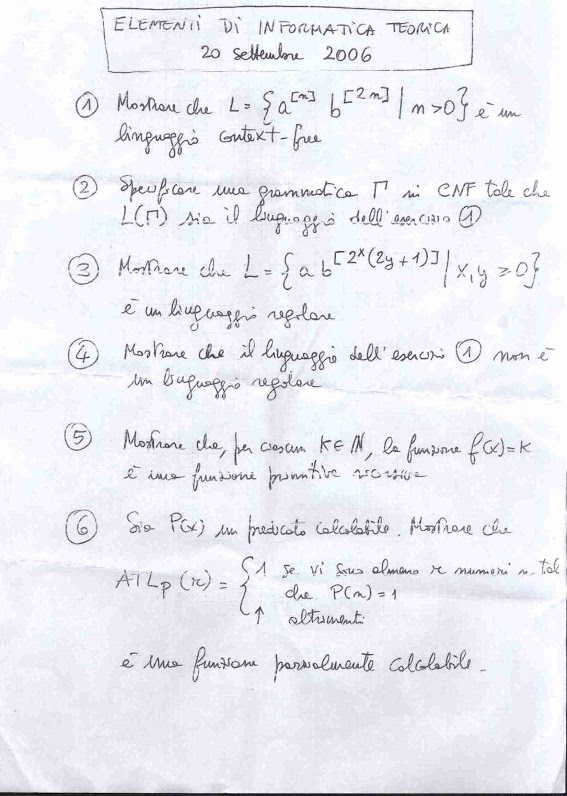 ELEMENTI DI INFORMATICA TEORICA
20 settembre 2006
① Mostrare che L = {a^[n] b^[2n] | n > 0} è un
linguaggio context-free
② Specificare una grammatica Γ in CNF tale che
L(Γ) sia il linguaggio dell'esercizio ①
③ Mostrare che L = {a b^[2^x(2y+1)] | x, y ≥ 0}
è un linguaggio regolare
④ Mostrare che il linguaggio dell'esercizi ① non è
un linguaggio regolare
⑤ Mostrare che, per ciascun K ∈ ℕ, la funzione f(x) = K
è una funzione primitiva ricorsiva
⑥ Sia P(x) un predicato calcolabile. Mostrare che
ATLp(r) = { 1 se vi sono almeno r numeri n tal
che P(n) = 1
↑ altrimenti
è una funzione parzialmente calcolabile.